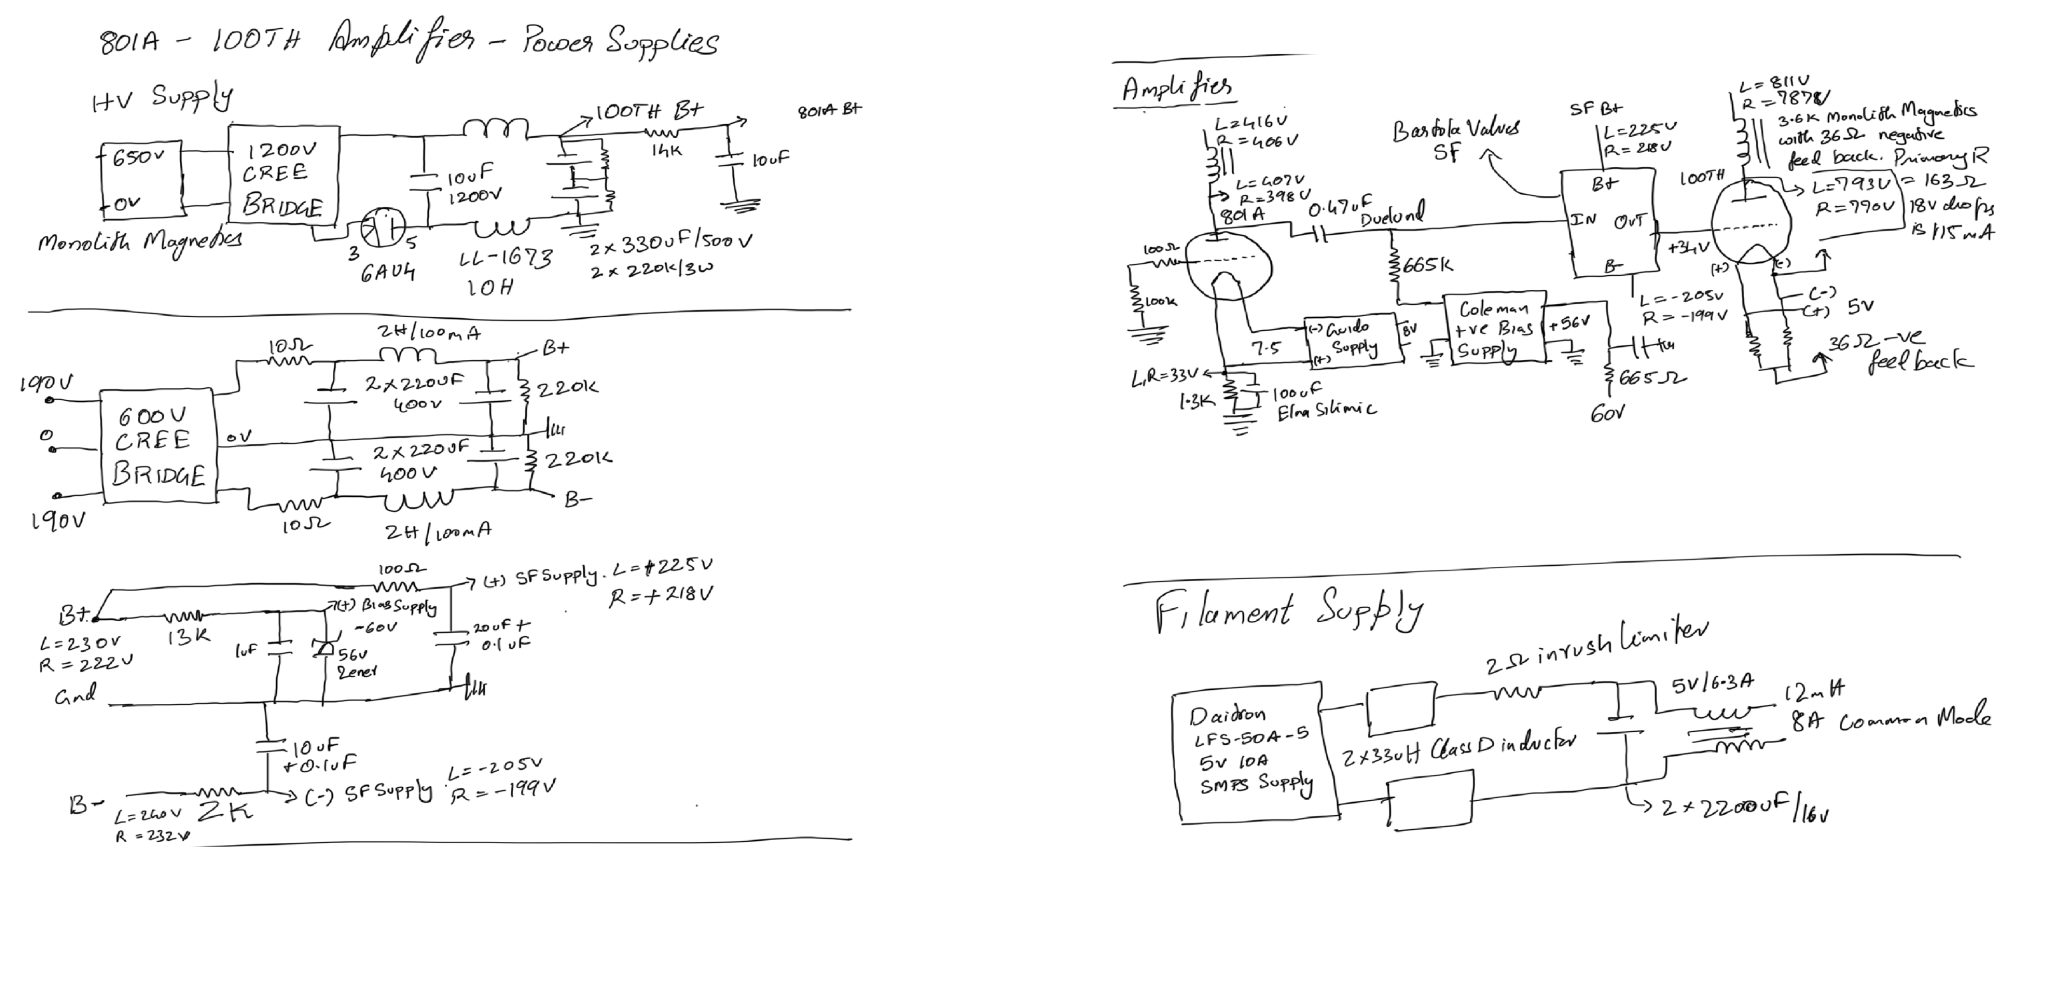 801A - 100TH Amplifier - Power Supplies
HV Supply
650V
0V
Monolith Magnetics
1200V
CREE
BRIDGE
10uF
1200V
3
5
6AU4
LL-1673
10H
100TH B+
14K
801A B+
10uF
2x330uF/500V
2x220K/3W
190V
0
190V
600V
CREE
BRIDGE
0V
10Ω
2H/100mA
B+
2x220uF
400V
220K
2x220uF
400V
220K
B-
10Ω
2H/100mA
B+
L=230V
R=222V
13K
100Ω
(+) SF Supply. L=+225V
R=+218V
(+) Bias Supply
~60V
1uF
56V
Zener
20uF+
0.1uF
Gnd
10uF
+0.1uF
B-
L=240V
R=232V
2K
(-) SF Supply
L=-205V
R=-199V
Amplifier
L=416V
R=406V
L=407V
R=398V
801A
0.47uF
Duelund
100Ω
100K
665K
7.5
(-) Guido
Supply
(+)
8V
Coleman
+ve Bias
Supply
+56V
L,R=33V
1.3K
100uF
Elna Silimic
665Ω
60V
Bartola Valves
SF
SF B+
L=225V
R=218V
B+
IN OUT
B-
+34V
L=-205V
R=-199V
L=811V
R=787V
3.6K Monolith Magnetics
with 36Ω negative
feed back. Primary R
= 163Ω
18V drops
is 115mA
100TH
L=793V
R=790V
(+)
(-)
(-)
(+) 5V
36Ω -ve
feedback
Filament Supply
Daitron
LFS-50A-5
5V 10A
SMPS Supply
2x33uH Class D inductor
2Ω inrush limiter
5V/6.3A
12mH
8A Common Mode
2x2200uF/16V